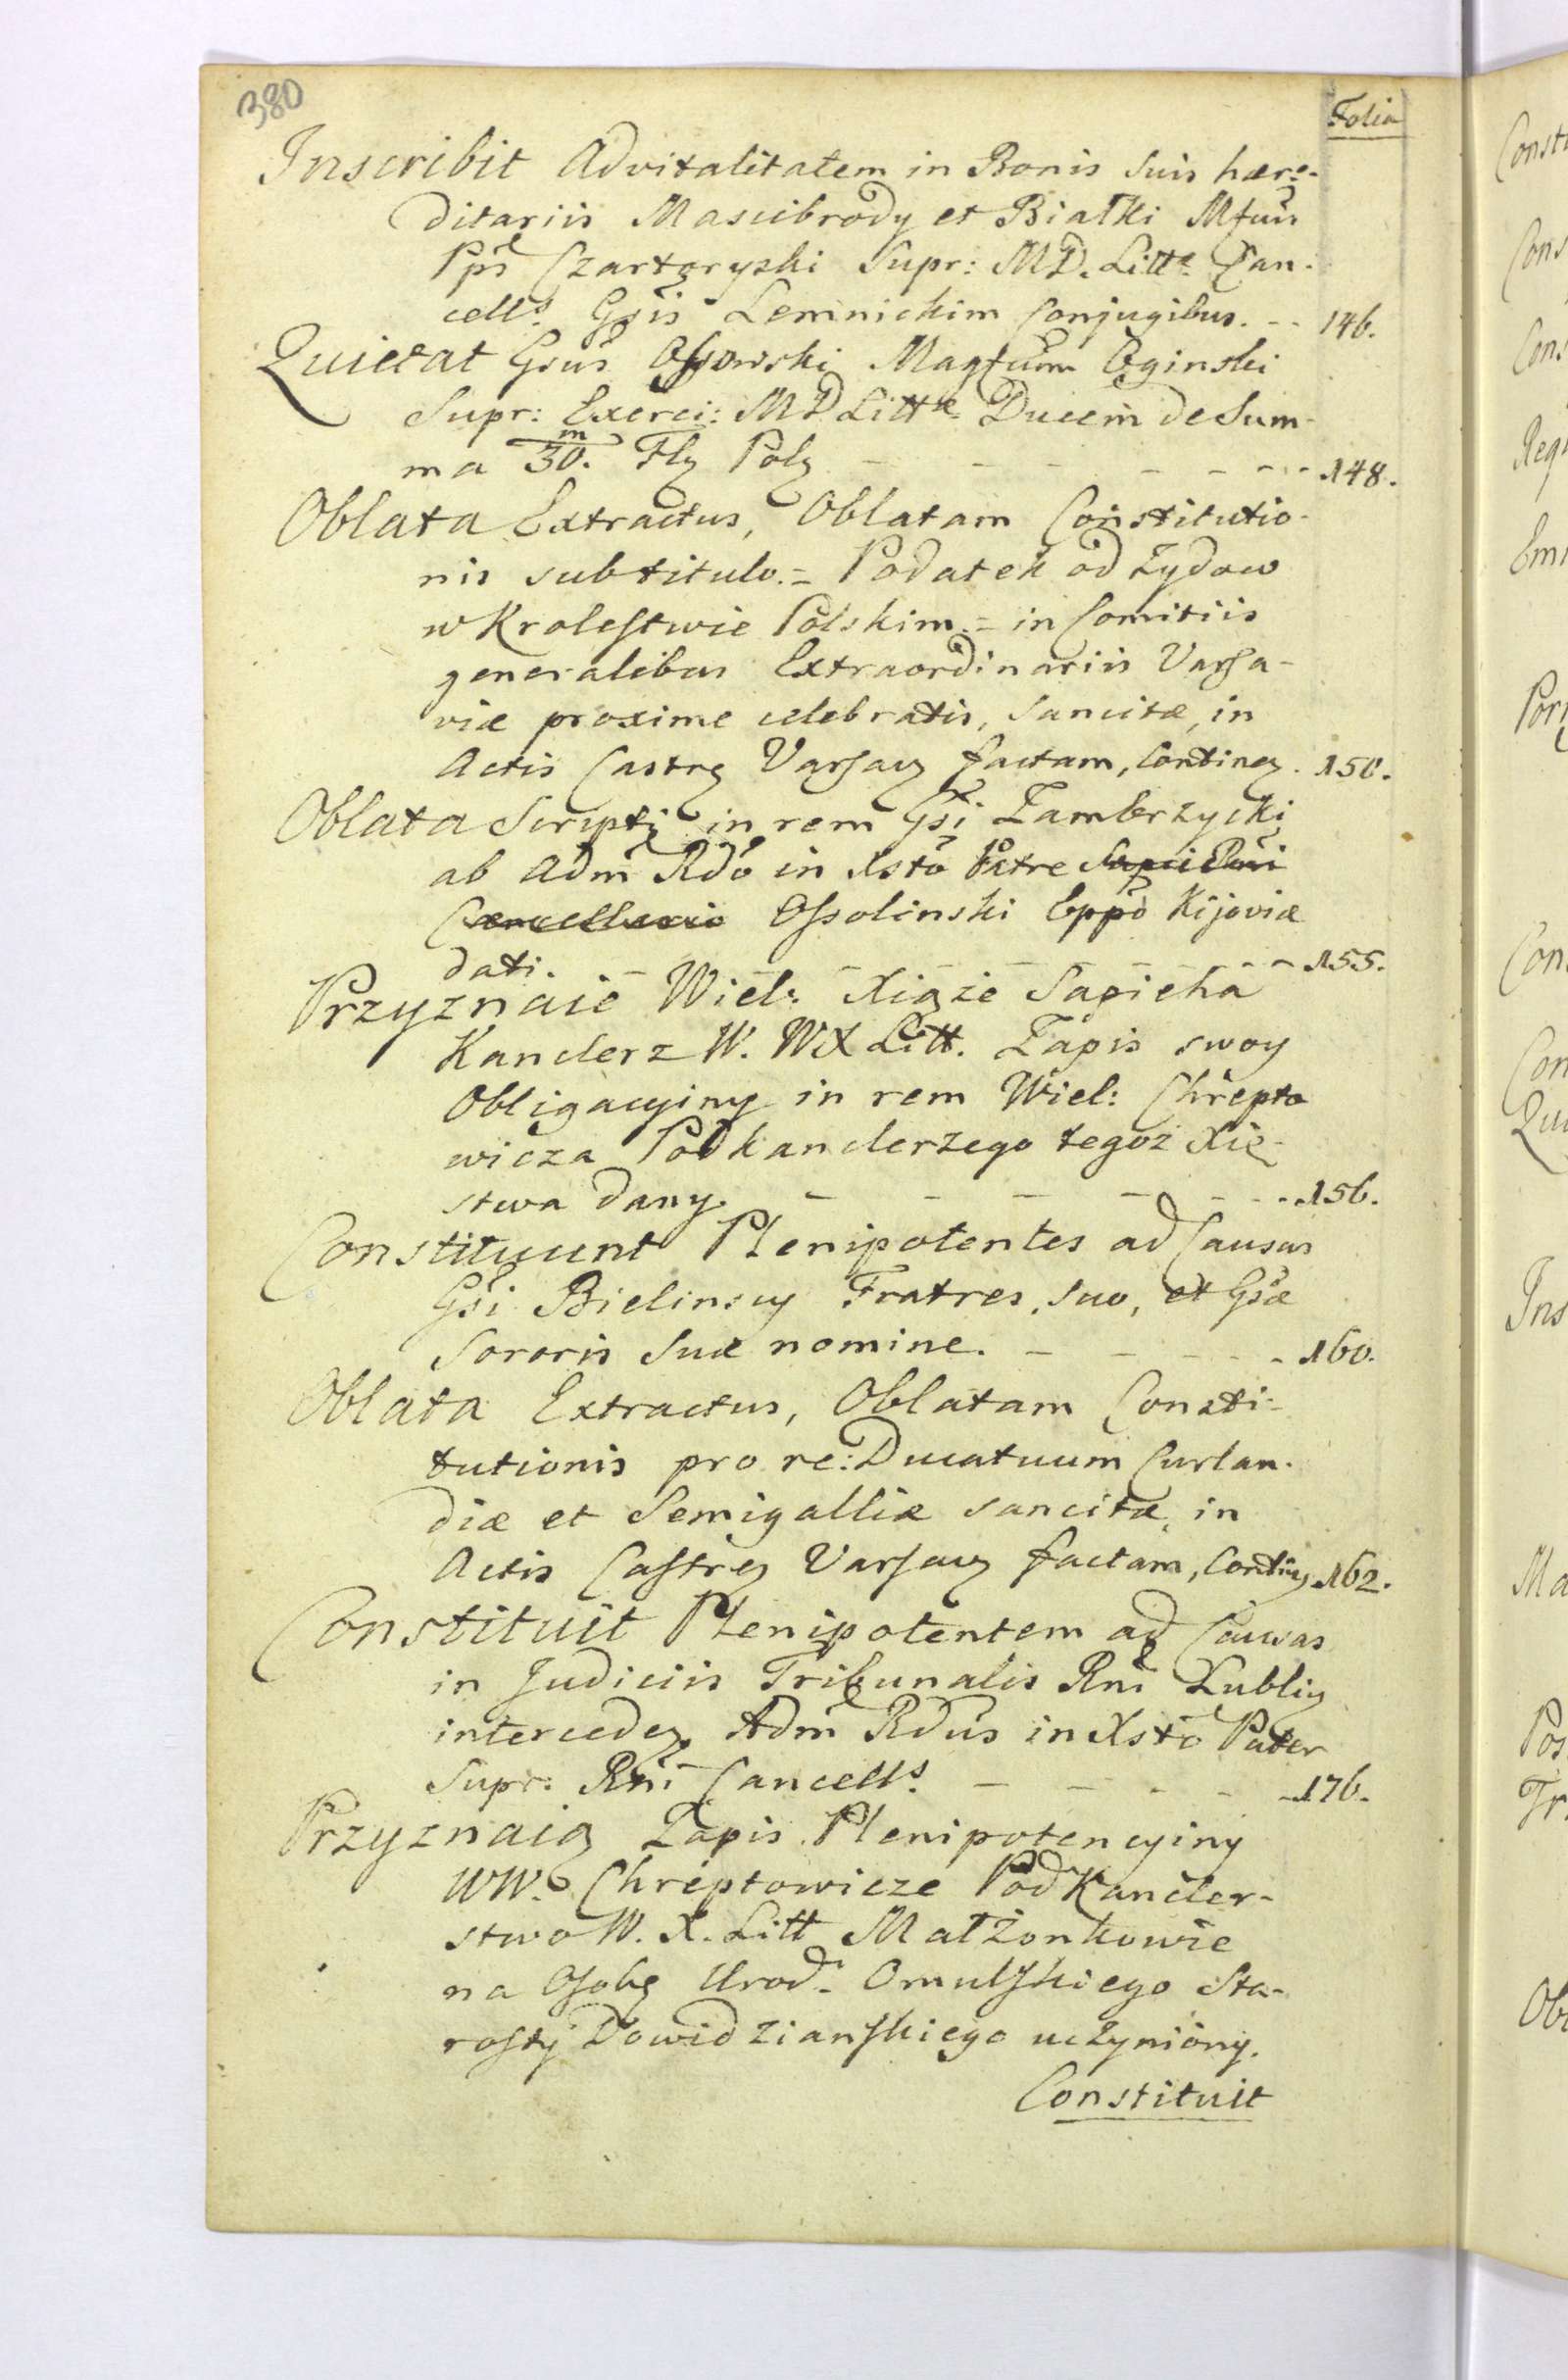 380
Folia
Inscribit Advitalitatem in Bonis Suis hære-
ditariis Mascibrody et Białki Mfus
Pps Czartoryski Supr: M.D. Litt. Can-
cells Gsis Lemnickim Conjugibus. - - 146.
Quietat Gsus Ossowski Magfum Oginski
Supr: Exerci: M D Littæ Ducem de Sum-
ma 30. m Flg Polg - - - - - - 148.
Oblata Extractus, Oblatam Constitutio-
nis subtitulo. = Podatek od Żydow
w Krolestwie Polskim. = in Comitiis
generalibus Extraordinariis Varsa-
viæ proxime celebratis, Sancitæ, in
Actis Castrg Varsavg factam, Conting. 150.
Oblata Scripti in rem Gsi Zambrzycki
ab Adm Rdo in Xsto Patre
Cancellario Ossolinski Eppo Kijoviæ
dati. - - - - - - - 155.
Przyznaie Wiel: Xiąże Sapieha
Kanclerz W. W X Litt. Zapis swoy
Obligacyiny in rem Wiel: Chrepto
wicza Podkanclerzego tegoż Xię-
stwa dany. - - - - - - 156.
Constituunt Plenipotentes ad Causas
Gsi Bielinscy Fratres, suo, et Gsæ
Sororis Suæ nomine. - - - - - 160.
Oblata Extractus, Oblatam Consti-
tutionis pro re: Ducatuum Curlan-
diæ et Semigalliæ sancitæ, in
Actis Castrg Varsavg factam, Conting 162.
Constituit Plenipotentem ad Causas
in Judiciis Tribunalis Rni Lublig
intercedeg. Adm Rdus in Xsto Pater
Supr: Rni Cancells. - - - - - 176.
Przyznaią Zapis Plenipotencyiny
WW. Chreptowicze PodKancler-
stwo W. X. Litt Małżonkowie
na Osobę Urod: Omulskiego Sta-
rosty Dowidzianskiego uczyniony.
Constituit